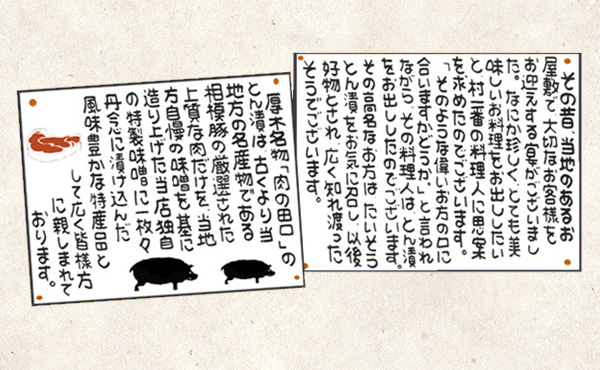 その昔、当地のあるお
屋敷で、大切なお客様を
お迎えする宴がございまし
た。なにか珍しく、とても美
味しいお料理をお出ししたい
と、村一番の料理人に思案
を求めたのでございます。
「そのような偉いお方の口に
合いますかどうか。」と言われ
ながら、その料理人は、とん漬
をお出ししたのでございます。
その高名なお方は、たいそう
とん漬をお気に召し、以後
好物とされ、広く知れ渡った
そうでございます。
厚木名物「肉の田口」の
とん漬は、古くより当
地方の名産物である
相模豚の厳選された
上質な肉だけを、当地
方自慢の味噌を基に
造り上げた当店独自
の特製味噌に一枚々
丹念に漬け込んだ
風味豊かな特産品と
して広く皆様方
に親しまれて
おります。